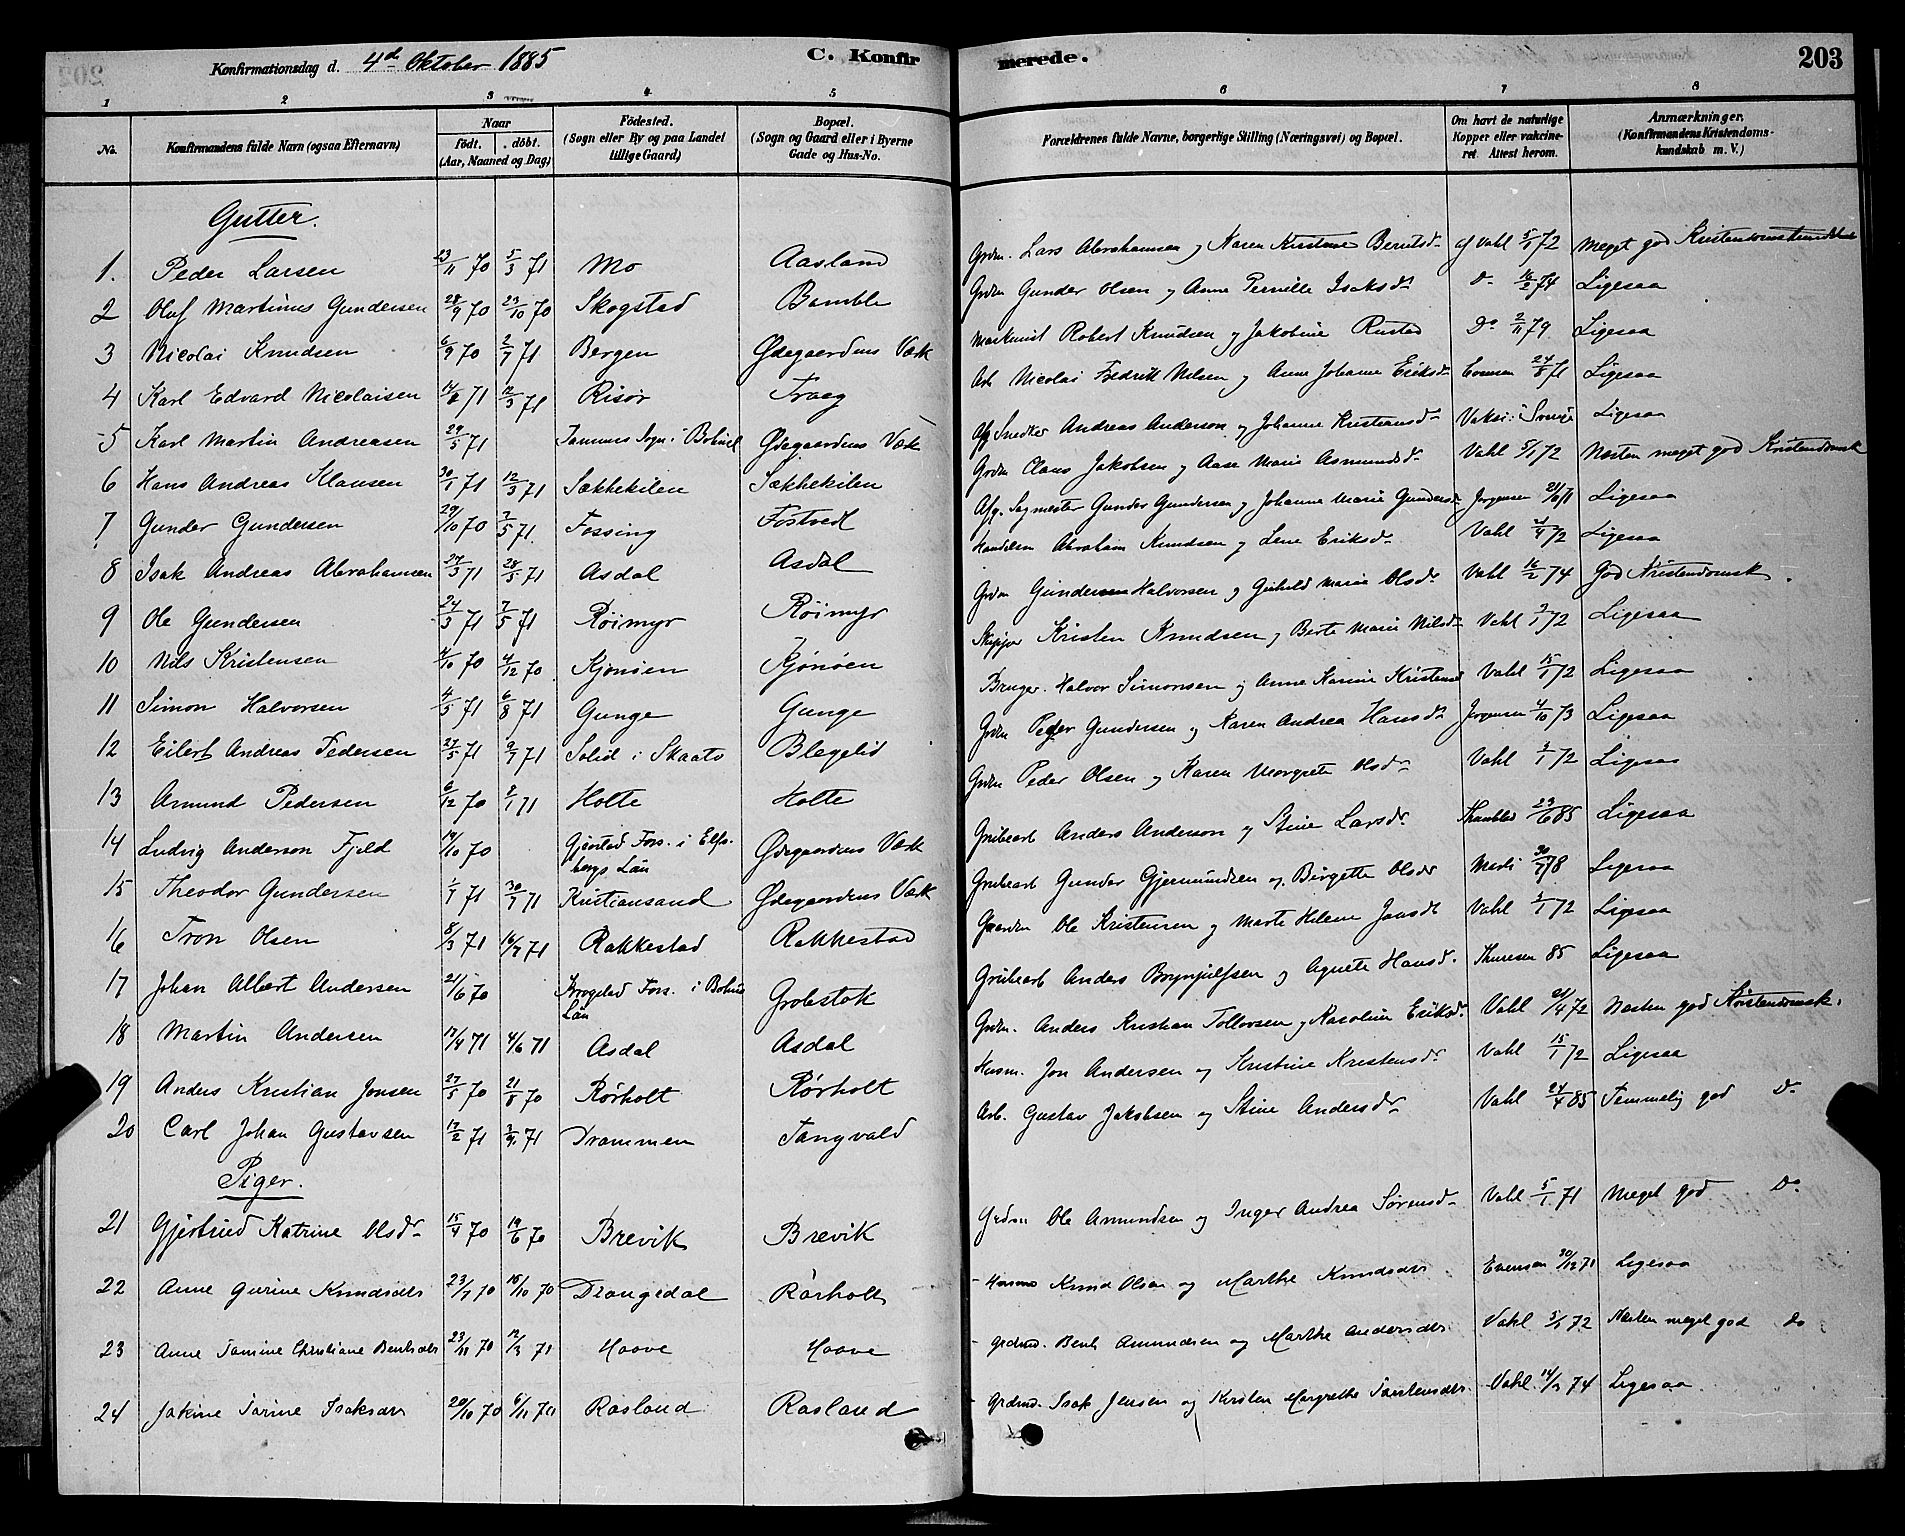 Konfirmationsdag d. 4de Oktober 1885 C. Konfirmerede. 203
1 2 3 4 5 6 7 8
No. Konfirmandens fulde Navn (ogsaa Efternavn) Naar födt. döbt. (Aar, Maaned og Dag) Födested. (Sogn eller By og paa Landet tillige Gaard) Bopæl. (Sogn og Gaard eller i Byerne Gade og Hus-No. Forældrenes fulde Navne, borgerlige Stilling (Næringsvei) og Bopæl. Om havt de naturlige Kopper eller vakcineret. Attest herom. Anmærkninger. (Konfirmandens Kristendomskundskab m. V.)
Gutter.
1. Peder Larsen 23/11 70 5/3 71 Mo Aasland Grdm. Lars Abrahamsen og Karen Kristine Berntsd. af Vahl 5/1 72 Meget god Kristendomskundskab
2 Oluf Martinius Gundersen 28/9 70 23/10 70 Skogstad Bamble Grdm Gunder Olsen og Anne Pernille Isaksd. Do 16/2 74 Ligesaa
3 Nicolai Knudsen 6/9 70 2/7 71 Bergen Ødegaardens Værk Maskinist Robert Knudsen og Jakobine Rustad Do 2/11 79 Ligesaa
4 Karl Edvard Nicolaisen 71 12/3 71 Risør Traag Arb Nicolai Fredrik Nilsen og Anne Johanne Eriksd. Evensen 24/8 71 Ligesaa
5 Karl Martin Andreasen 29/5 71 Tanums Sogn i Bohusl Ødegaardens Værk Afg. Snedker Andreas Anderson og Johanne Kristiansd. Vaksi: i Sverige Ligesaa
6 Hans Andreas Klausen 30/1 71 12/3 71 Sækkekilen Sækkekilen Grdm Claus Jakobsen og Aase Marie Asmundsd. Vahl 5/1 72 Næsten meget god Kristendomsk
7 Gunder Gundersen 29/10 70 7/5 71 Fossing Fostvedt Afg. Sagmester Gunder Gundersen og Johanne Marie Gundersd. Jørgensen 21/10 71 Ligesaa
8 Isak Andreas Abrahamsen 27/3 71 28/5 71 Asdal Asdal Abraham Knudsen og Lene Eriksd. Vahl 4/4 72 Ligesaa
9 Ole Gundersen 24/3 71 7/5 71 Røimyr Røimyr Grdm Gundersen Halvorsen og Gunhild Marie Olsd. Vahl 16/2 74 God Kristendomsk.
10 Nils Kristensen 4/10 70 4/12 70 Kjønøen Kjønøen Skipper Kristen Knudsen og Berte Marie Nilsd. Vahl 3/1 72 Ligesaa
11 Simon Halvorsen 4/5 71 6/8 71 Gunge Gunge Bruger. Halvor Simonsen og Anne Karine Kristensd Vahl 15/1 72 Ligesaa
12 Eilert Andreas Pedersen 27/5 71 9/7 71 Solid i Skaato Blegelid Grdm Peder Gundersen og Karen Andrea Hansd. Jørgensen 4/10 73 Ligesaa
13 Amund Pedersen 6/12 70 8/1 71 Holte Holte Grdm Peder Olsen og Karen Margrete Olsd. Vahl 3/1 72 Ligesaa
14 Ludvig Anderson Fjeld 14/10 70 Gjæstad Fors. i Elfsborgs Län Ødegaardens Værk Grubearb Anders Anderson og Stine Larsdr. 23/6 85 Ligesaa
15 Theodor Gundersen 1/7 71 30/7 71 Kristiansand Ødegaardens Værk Grubearb Gunder Gjermundsen og Birgitte Olsdr 30/7 78 Ligesaa
16 Tron Olsen 8/3 71 16/7 71 Rakkestad Rakkestad Gaardm Ole Kristensen og Marte Helene Jonsdt Vahl 3/1 72 Ligesaa
17 Johan Albert Andersen 21/6 70 Krogstad Fors. i Bohus Län Grobstok Grubearb Anders Brynjulfsen og Agnete Hansd. Thuresen 85 Ligesaa
18 Martin Andersen 17/4 71 4/6 71 Asdal Asdal Grdm. Anders Kristian Tollevsen og Karoline Eriksd. Vahl 21/4 72 Næsten god Kristendomsk.
19 Anders Kristian Jonsen 27/5 70 21/8 70 Rørholt Rørholt Husm. Jon Andersen og Kristine Kristensdr Vahl 15/1 72 Ligesaa
20 Carl Johan Gustavsen 17/2 71 3/9 71 Drammen Tangvald Arb. Gustav Jakobsen og Stine Andersdr Vahl 24/4 85 Temmelig god Do
Piger.
21 Gjertrud Katrine Olsdr 15/4 70 19/6 70 Brevik Brevik Grdm Ole Amundsen og Inger Andrea Sørensd. Vahl 5/1 71 Meget god Do
22 Anne Gurine Knudsdtr 23/7 70 16/10 70 Drangedal Rørholt Husmd Knud Olsen og Marthe Knudsdtr Evensen 30/12 71 Ligesaa
23 Anne Tomine Christiane Bentsdtr 23/11 70 12/3 71 Hoove Hoove Grdmd. Bent Amundsen og Marthe Andersdtr Vahl 3/1 72 Næsten meget god do
24 Jakine Torine Isaksdtr 20/10 70 6/11 70 Rosland Rosland Grdmd. Isak Jensen og Kirsten Margrethe Torstensdtr. Vahl 14/2 74 Ligesaa